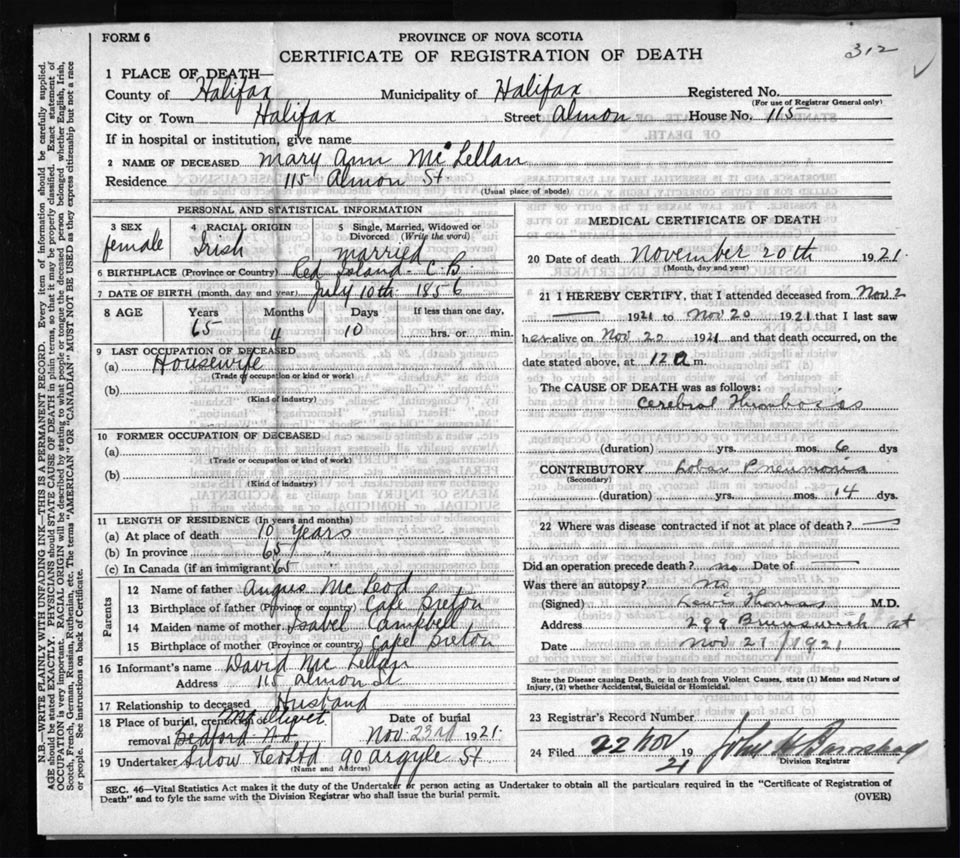 FORM 6
PROVINCE OF NOVA SCOTIA
CERTIFICATE OF REGISTRATION OF DEATH
312
1 PLACE OF DEATH—
County of Halifax Municipality of Halifax Registered No.
(For use of Registrar General only)
City or Town Halifax Street Almon House No. 115
If in hospital or institution, give name
2 NAME OF DECEASED Mary Ann McLellan
Residence 115 Almon St
(Usual place of abode)
PERSONAL AND STATISTICAL INFORMATION
3 SEX female
4 RACIAL ORIGIN Irish
5 Single, Married, Widowed or Divorced (Write the word) married
6 BIRTHPLACE (Province or Country) Red Island - C.B.
7 DATE OF BIRTH (month, day and year) July 10th 1856
8 AGE Years Months Days If less than one day,
65 4 10 hrs. or min.
9 LAST OCCUPATION OF DECEASED
(a) Housewife
(Trade or occupation or kind of work)
(b)
(Kind of industry)
10 FORMER OCCUPATION OF DECEASED
(a)
(Trade or occupation or kind of work)
(b)
(Kind of industry)
11 LENGTH OF RESIDENCE (In years and months)
(a) At place of death 10 years
(b) In province 65 "
(c) In Canada (if an immigrant) 65
Parents
12 Name of father Angus McLeod
13 Birthplace of father (Province or country) Cape Breton
14 Maiden name of mother Isabel Campbell
15 Birthplace of mother (Province or country) Cape Breton
16 Informant's name David McLellan
Address 115 Almon St
17 Relationship to deceased Husband
18 Place of burial, cremation or removal Mt Olivet
Date of burial Nov. 23rd 1921.
19 Undertaker Snow & Co Ltd 90 Argyle St
(Name and Address)
MEDICAL CERTIFICATE OF DEATH
20 Date of death November 20th 1921.
(Month, day and year)
21 I HEREBY CERTIFY, that I attended deceased from Nov 2
1921 to Nov 20 1921 that I last saw
her alive on Nov 20 1921 and that death occurred, on the
date stated above, at 12 a m.
The CAUSE OF DEATH was as follows:
Cerebral Thrombosis
(duration) yrs. mos. 6 dys
CONTRIBUTORY Lobar Pneumonia
(Secondary)
(duration) yrs. mos. 14 dys.
22 Where was disease contracted if not at place of death? —
Did an operation precede death? no Date of —
Was there an autopsy? no
(Signed) Lewis Thomas M.D.
Address 299 Brunswick st
Date Nov 21/1921
State the Disease causing Death, or in death from Violent Causes, state (1) Means and Nature of
Injury, (2) whether Accidental, Suicidal or Homicidal.
23 Registrar's Record Number
24 Filed 22 Nov 1921
Division Registrar
SEC. 46—Vital Statistics Act makes it duty of the Undertaker or person acting as Undertaker to obtain all the particulars required in the "Certificate of Registration of
Death" and to fyle the same with the Division Registrar who shall issue the burial permit.
(OVER)
N.B.—WRITE PLAINLY WITH UNFADING INK—THIS IS A PERMANENT RECORD. Every item of information should be carefully supplied.
AGE should be stated EXACTLY. PHYSICIANS should STATE CAUSE OF DEATH in plain terms, so that it may be properly classified. Exact statement of
OCCUPATION is very important. RACIAL ORIGIN will be described by stating to what people or tongue the deceased person belonged whether English, Irish,
Scotch, French, German, Russian, Ruthenian, etc. The terms "AMERICAN" OR "CANADIAN" MUST NOT BE USED as they express citizenship but not a race
or people. See instructions on back of Certificate.